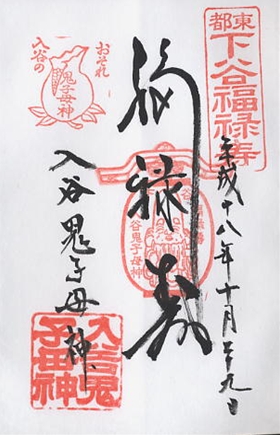 東都
下谷福禄寿
平成十八年十月廿九日
福禄寿
谷鬼子母神
おそれ
入谷の
鬼子母神
入谷鬼子母神
入谷鬼
子母神